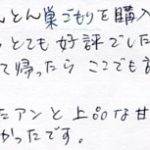 んとん巣ごもりを購入
っとても好評でした
て帰ったら ここでも
たアンと上品な甘
かったです。